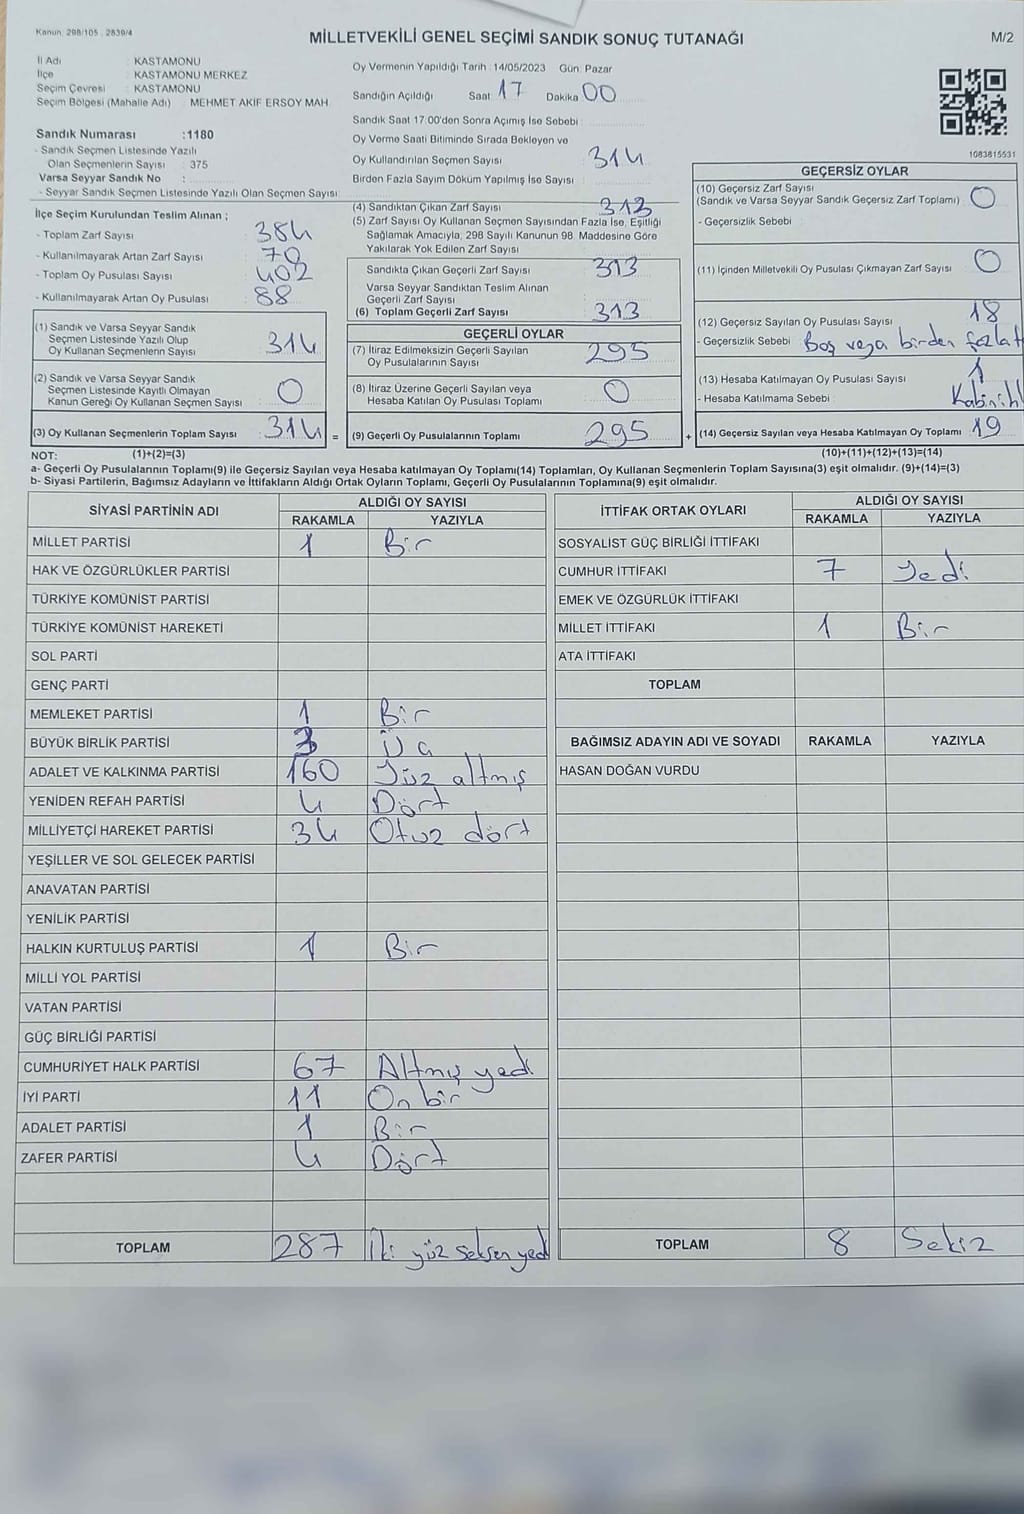 Kanun: 298/105 , 2839/4
MİLLETVEKİLİ GENEL SEÇİMİ SANDIK SONUÇ TUTANAĞI
M/2
İl Adı : KASTAMONU
İlçe : KASTAMONU MERKEZ
Seçim Çevresi : KASTAMONU
Seçim Bölgesi (Mahalle Adı) : MEHMET AKİF ERSOY MAH.
Sandık Numarası :1180
- Sandık Seçmen Listesinde Yazılı
Olan Seçmenlerin Sayısı : 375
Varsa Seyyar Sandık No :
- Seyyar Sandık Seçmen Listesinde Yazılı Olan Seçmen Sayısı:
Oy Vermenin Yapıldığı Tarih : 14/05/2023 Gün: Pazar
Sandığın Açıldığı Saat 17 Dakika 00
Sandık Saat 17.00'den Sonra Açımış İse Sebebi :
Oy Verme Saati Bitiminde Sırada Bekleyen ve
Oy Kullandırılan Seçmen Sayısı 314
Birden Fazla Sayım Döküm Yapılmış İse Sayısı :
1083815531
İlçe Seçim Kurulundan Teslim Alınan ;
- Toplam Zarf Sayısı 384
- Kullanılmayarak Artan Zarf Sayısı 70
- Toplam Oy Pusulası Sayısı 402
- Kullanılmayarak Artan Oy Pusulası 88
(1) Sandık ve Varsa Seyyar Sandık
Seçmen Listesinde Yazılı Olup
Oy Kullanan Seçmenlerin Sayısı 314
(2) Sandık ve Varsa Seyyar Sandık
Seçmen Listesinde Kayıtlı Olmayan
Kanun Gereği Oy Kullanan Seçmen Sayısı 0
(3) Oy Kullanan Seçmenlerin Toplam Sayısı 314 =
(4) Sandıktan Çıkan Zarf Sayısı 313
(5) Zarf Sayısı Oy Kullanan Seçmen Sayısından Fazla İse, Eşitliği
Sağlamak Amacıyla, 298 Sayılı Kanunun 98. Maddesine Göre
Yakılarak Yok Edilen Zarf Sayısı
Sandıkta Çıkan Geçerli Zarf Sayısı 313
Varsa Seyyar Sandıktan Teslim Alınan
Geçerli Zarf Sayısı
(6) Toplam Geçerli Zarf Sayısı 313
GEÇERLİ OYLAR
(7) İtiraz Edilmeksizin Geçerli Sayılan
Oy Pusulalarının Sayısı 295
(8) İtiraz Üzerine Geçerli Sayılan veya
Hesaba Katılan Oy Pusulası Toplamı 0
(9) Geçerli Oy Pusulalarının Toplamı 295 +
GEÇERSİZ OYLAR
(10) Geçersiz Zarf Sayısı
(Sandık ve Varsa Seyyar Sandık Geçersiz Zarf Toplamı) 0
- Geçersizlik Sebebi :
(11) İçinden Milletvekili Oy Pusulası Çıkmayan Zarf Sayısı 0
(12) Geçersiz Sayılan Oy Pusulası Sayısı 18
- Geçersizlik Sebebi : Boş veya birden fazla
(13) Hesaba Katılmayan Oy Pusulası Sayısı 1
- Hesaba Katılmama Sebebi :
(14) Geçersiz Sayılan veya Hesaba Katılmayan Oy Toplamı 19
NOT: (1)+(2)=(3)
(10)+(11)+(12)+(13)=(14)
a- Geçerli Oy Pusulalarının Toplamı(9) ile Geçersiz Sayılan veya Hesaba katılmayan Oy Toplamı(14) Toplamları, Oy Kullanan Seçmenlerin Toplam Sayısına(3) eşit olmalıdır. (9)+(14)=(3)
b- Siyasi Partilerin, Bağımsız Adayların ve İttifakların Aldığı Ortak Oyların Toplamı, Geçerli Oy Pusulalarının Toplamına(9) eşit olmalıdır.
SİYASİ PARTİNİN ADI
ALDIĞI OY SAYISI
RAKAMLA YAZIYLA
MİLLET PARTİSİ 1 Bir
HAK VE ÖZGÜRLÜKLER PARTİSİ
TÜRKİYE KOMÜNİST PARTİSİ
TÜRKİYE KOMÜNİST HAREKETİ
SOL PARTİ
GENÇ PARTİ
MEMLEKET PARTİSİ 1 Bir
BÜYÜK BİRLİK PARTİSİ 3 Üç
ADALET VE KALKINMA PARTİSİ 160 Yüz altmış
YENİDEN REFAH PARTİSİ 4 Dört
MİLLİYETÇİ HAREKET PARTİSİ 34 Otuz dört
YEŞİLLER VE SOL GELECEK PARTİSİ
ANAVATAN PARTİSİ
YENİLİK PARTİSİ
HALKIN KURTULUŞ PARTİSİ 1 Bir
MİLLİ YOL PARTİSİ
VATAN PARTİSİ
GÜÇ BİRLİĞİ PARTİSİ
CUMHURİYET HALK PARTİSİ 67 Altmış yedi
İYİ PARTİ 11 On bir
ADALET PARTİSİ 1 Bir
ZAFER PARTİSİ 4 Dört
TOPLAM 287 İki yüz seksen yedi
İTTİFAK ORTAK OYLARI
ALDIĞI OY SAYISI
RAKAMLA YAZIYLA
SOSYALIST GÜÇ BİRLİĞİ İTTİFAKI
CUMHUR İTTİFAKI 7 Yedi
EMEK VE ÖZGÜRLÜK İTTİFAKI
MİLLET İTTİFAKI 1 Bir
ATA İTTİFAKI
TOPLAM
BAĞIMSIZ ADAYIN ADI VE SOYADI RAKAMLA YAZIYLA
HASAN DOĞAN VURDU
TOPLAM 8 Sekiz